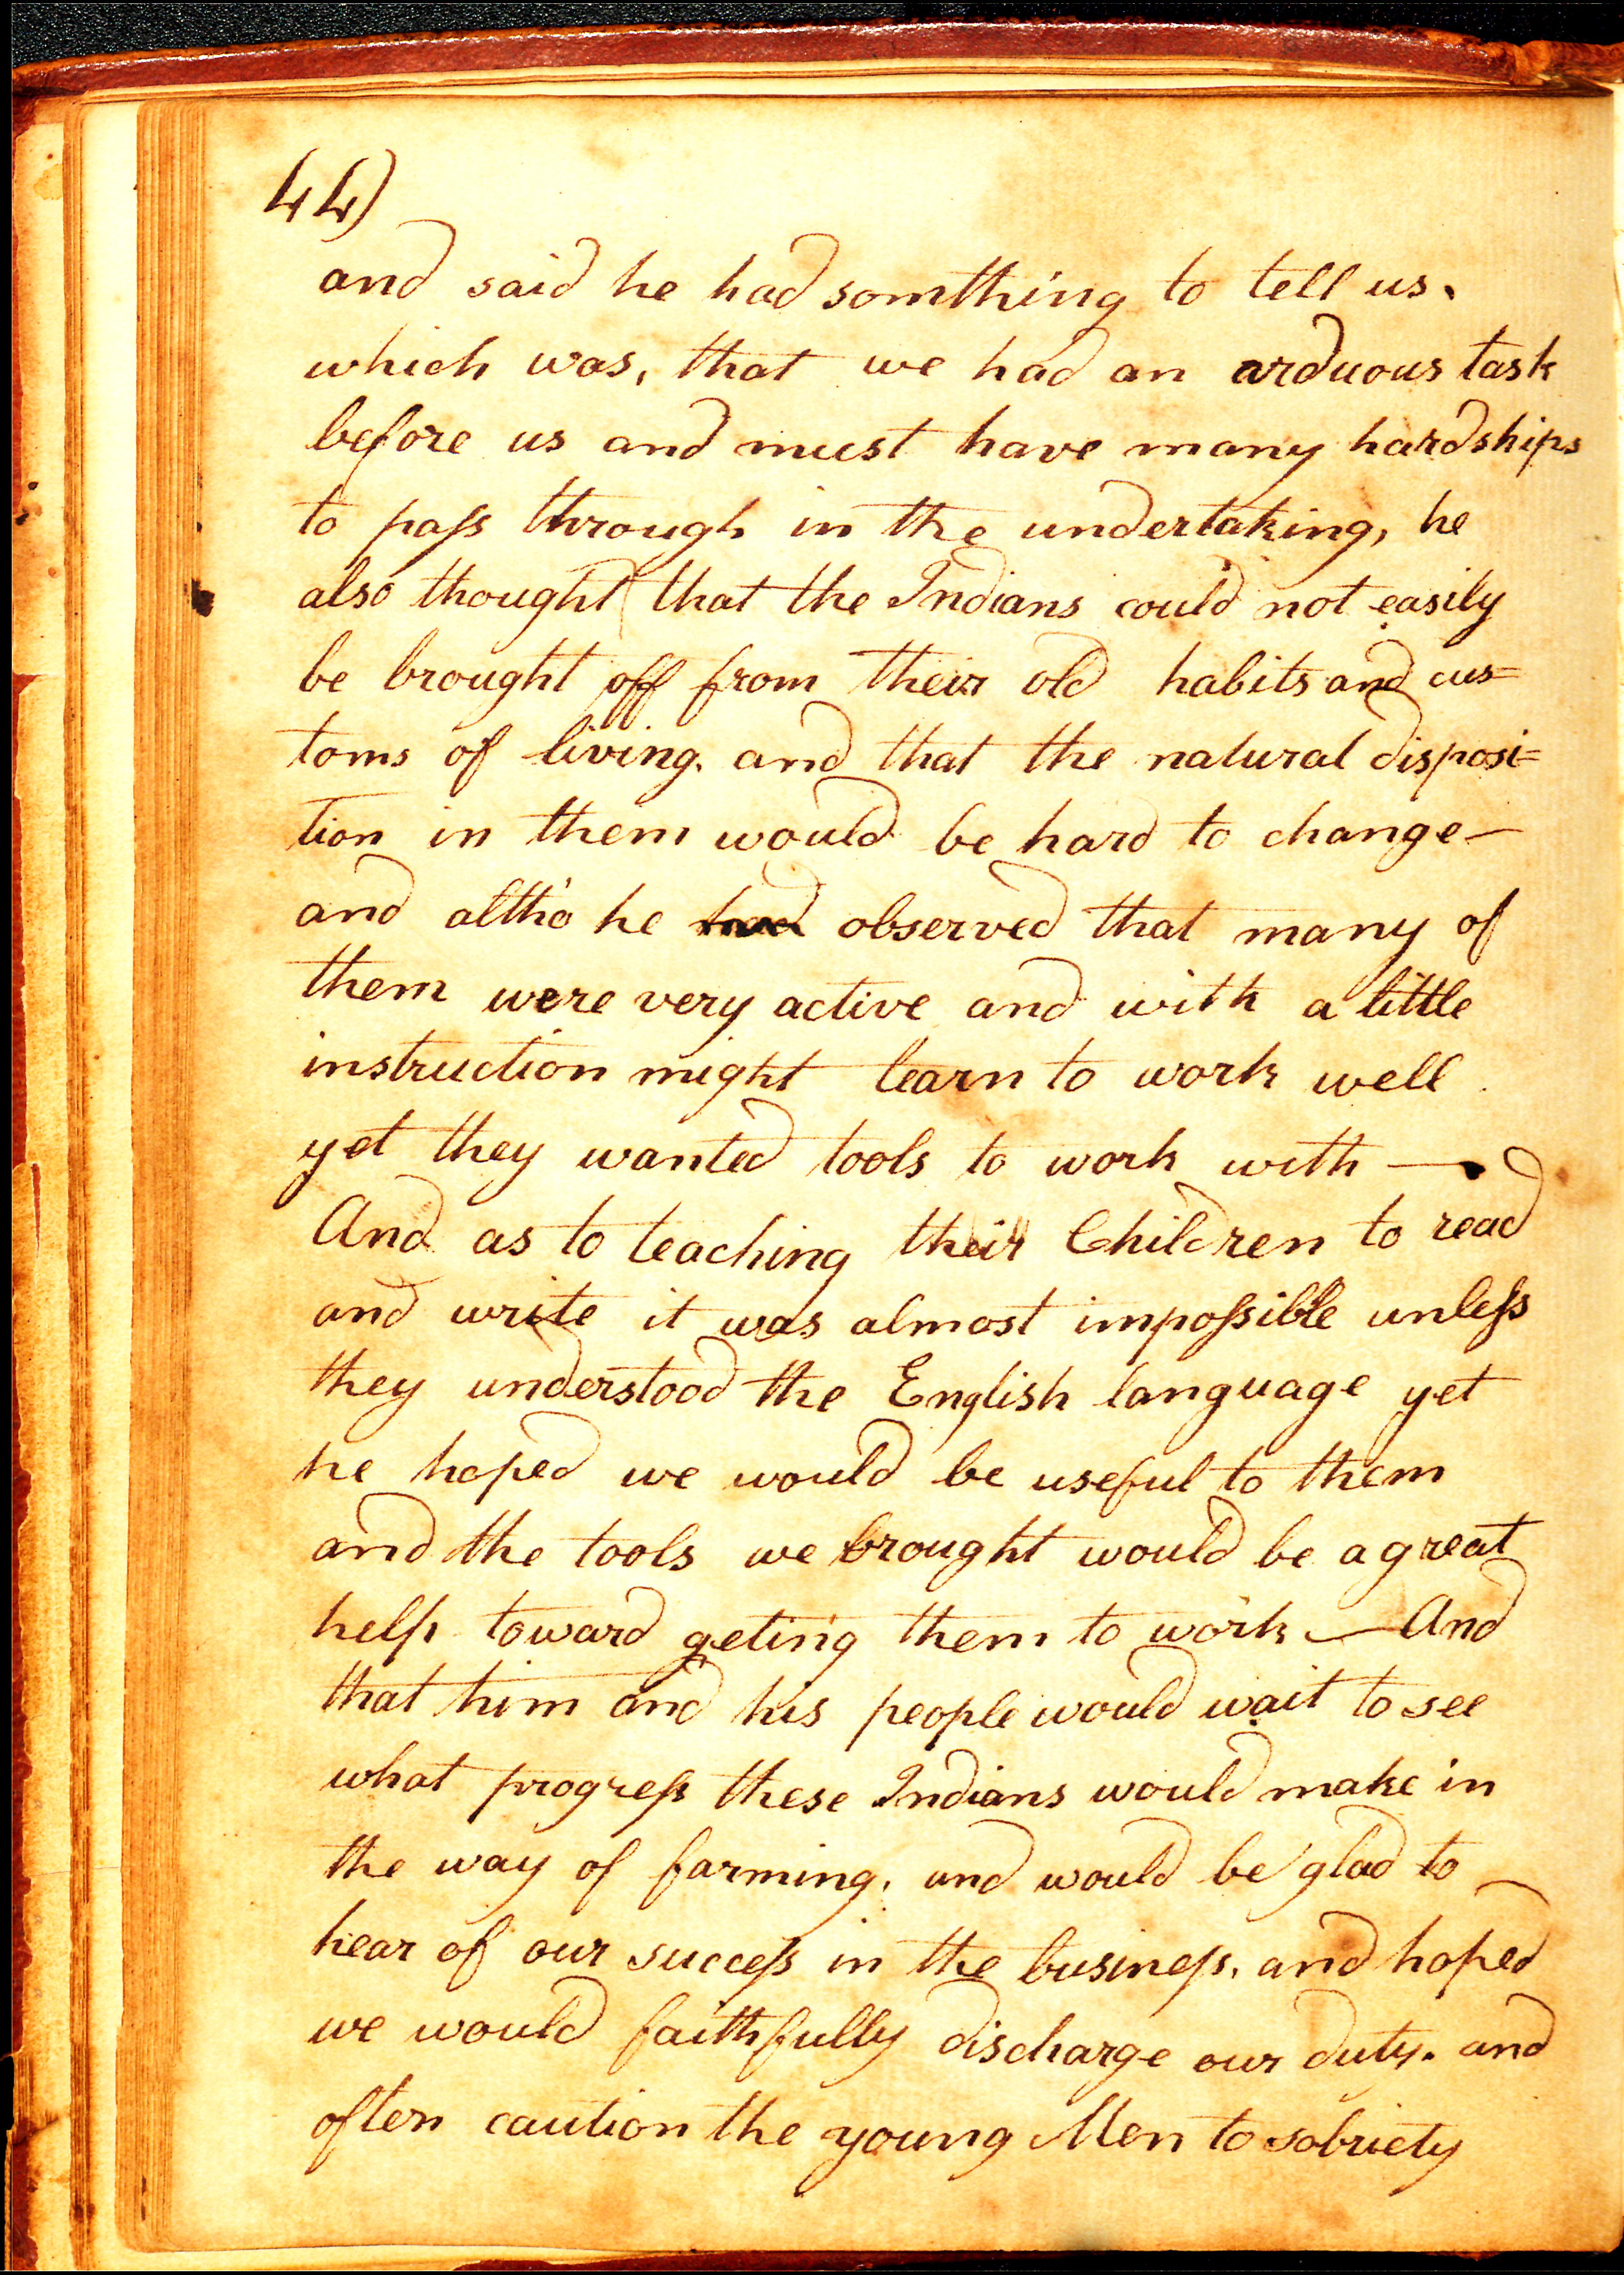 44)
and said he had somthing to tell us.
which was, that we had an arduous task
before us and must have many hardships
to paſs through in the undertaking, he
also thought that the Indians could not easily
be brought off from their old habits and cus=
toms of living. and that the natural disposi=
tion in them would be hard to change—
and altho' he had observed that many of
them were very active and with a little
instruction might learn to work well
yet they wanted tools to work with —
And as to teaching their Children to read
and write it was almost impoſsible unleſs
they understood the English language yet
he hoped we would be useful to them
and the tools we brought would be a great
help toward geting them to work — And
that him and his people would wait to see
what progreſs these Indians would make in
the way of farming, and would be glad to
hear of our succeſs in the busineſs, and hoped
we would faithfully discharge our duty. and
often caution the young Men to sobriety